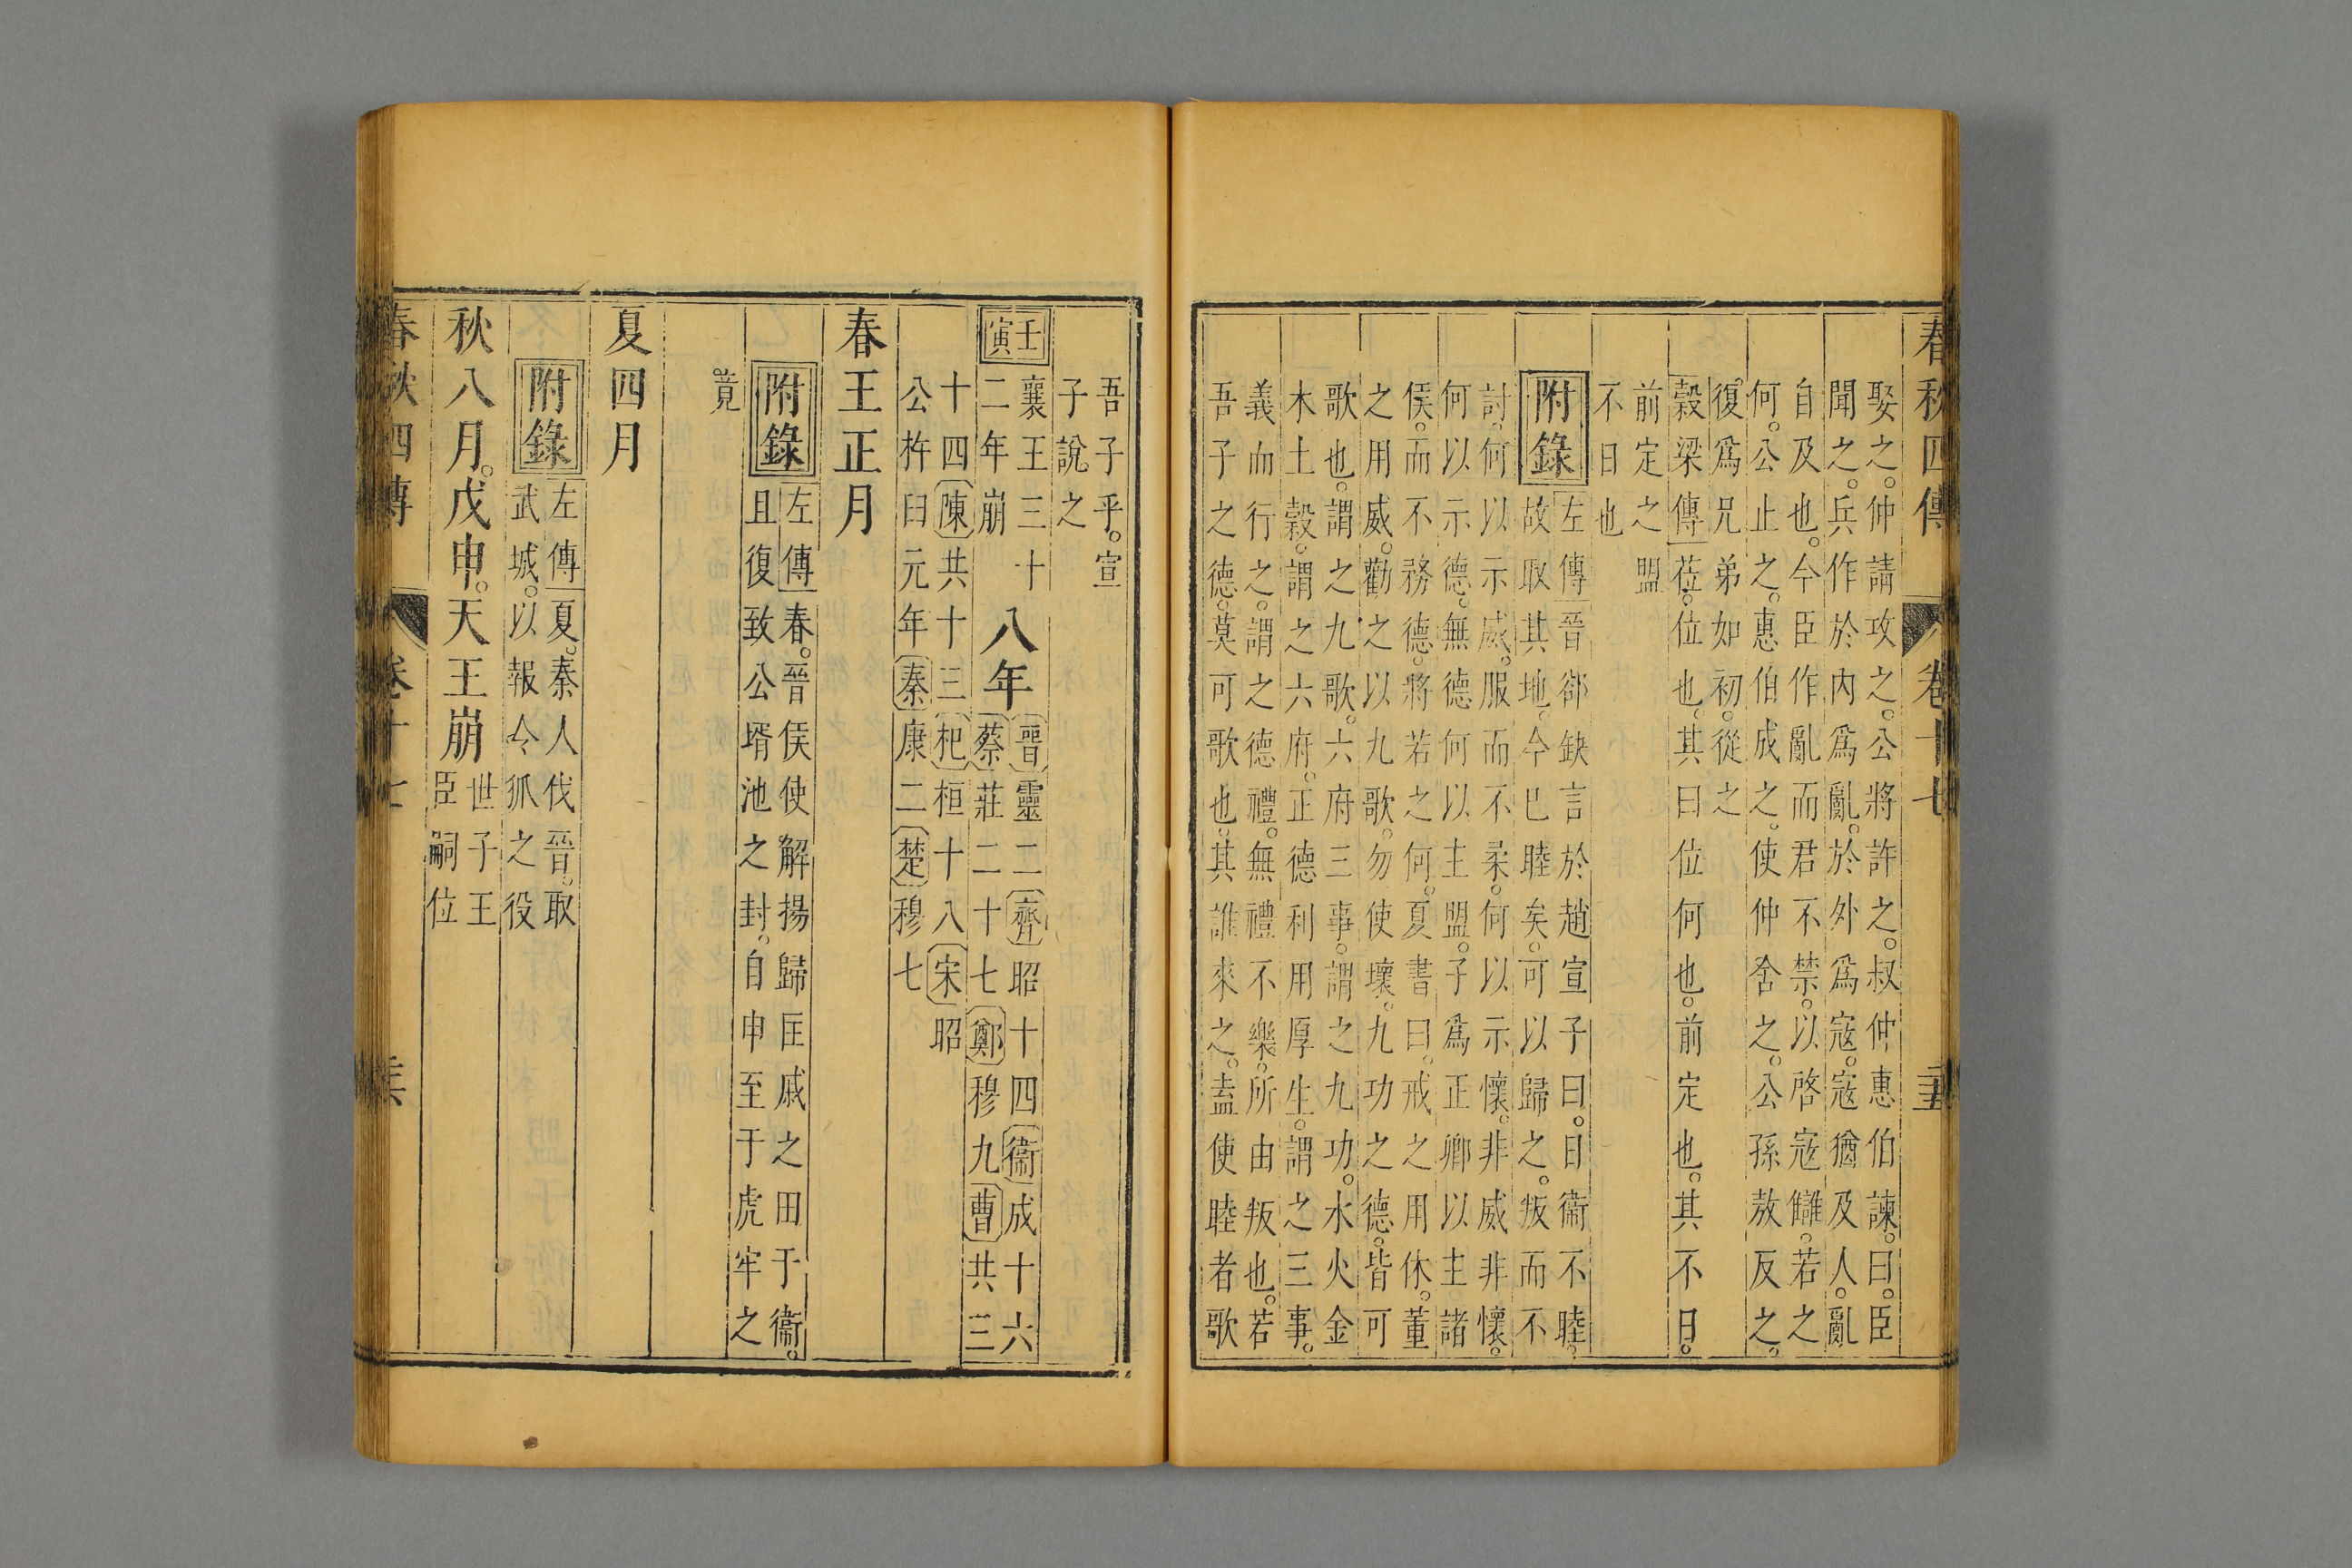 春秋四傳 卷十七 五
娶之。仲請攻之。公將許之。叔仲惠伯諫。曰。臣
聞之。兵作於內爲亂。於外爲寇。寇猶及人。亂
自及也。今臣作亂而君不禁。以啓寇讎。若之
何。公止之。惠伯成之。使仲舍之。公孫敖反之。
復爲兄弟如初。從之
穀梁傳 莅。位也。其曰位何也。前定也。其不日。
前定之盟
不日也
附錄 左傳 晉郤缺言於趙宣子曰。日衞不睦。
故取其地。今巳睦矣。可以歸之。叛而不
討。何以示威。服而不柔。何以示懷。非威非懷。
何以示德。無德何以主盟。子爲正卿以主諸
侯。而不務德。將若之何。夏書曰。戒之用休。董
之用威。勸之以九歌。勿使壞。九功之德。皆可
歌也。謂之九歌。六府三事。謂之九功。水火金
木土穀。謂之六府。正德利用厚生。謂之三事。
義而行之。謂之德禮。無禮不樂。所由叛也。若
吾子之德。莫可歌也。其誰來之。盍使睦者歌
吾子乎。宣
子說之
壬寅 襄王三十
二年崩
八年
晉靈二 齊昭十四 衞成十六
蔡莊二十七 鄭穆九 曹共三
十四 陳共十三 杞桓十八 宋昭
公杵臼元年 秦康二 楚穆七
春王正月
附錄 左傳 春。晉侯使解揚歸匡戚之田于衞。
且復致公壻池之封。自申至于虎牢之
竟。
夏四月
附錄 左傳 夏。秦人伐晉。取
武城。以報令狐之役
秋八月。戊申。天王崩
世子王
臣嗣位
春秋四傳 卷十七